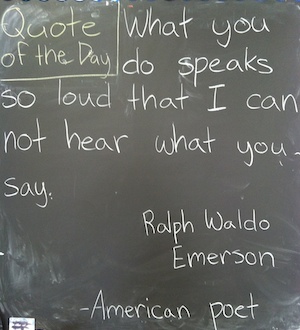 Quote
of the Day
What you
do speaks
so loud that I can
not hear what you
say.
Ralph Waldo
Emerson
-American poet